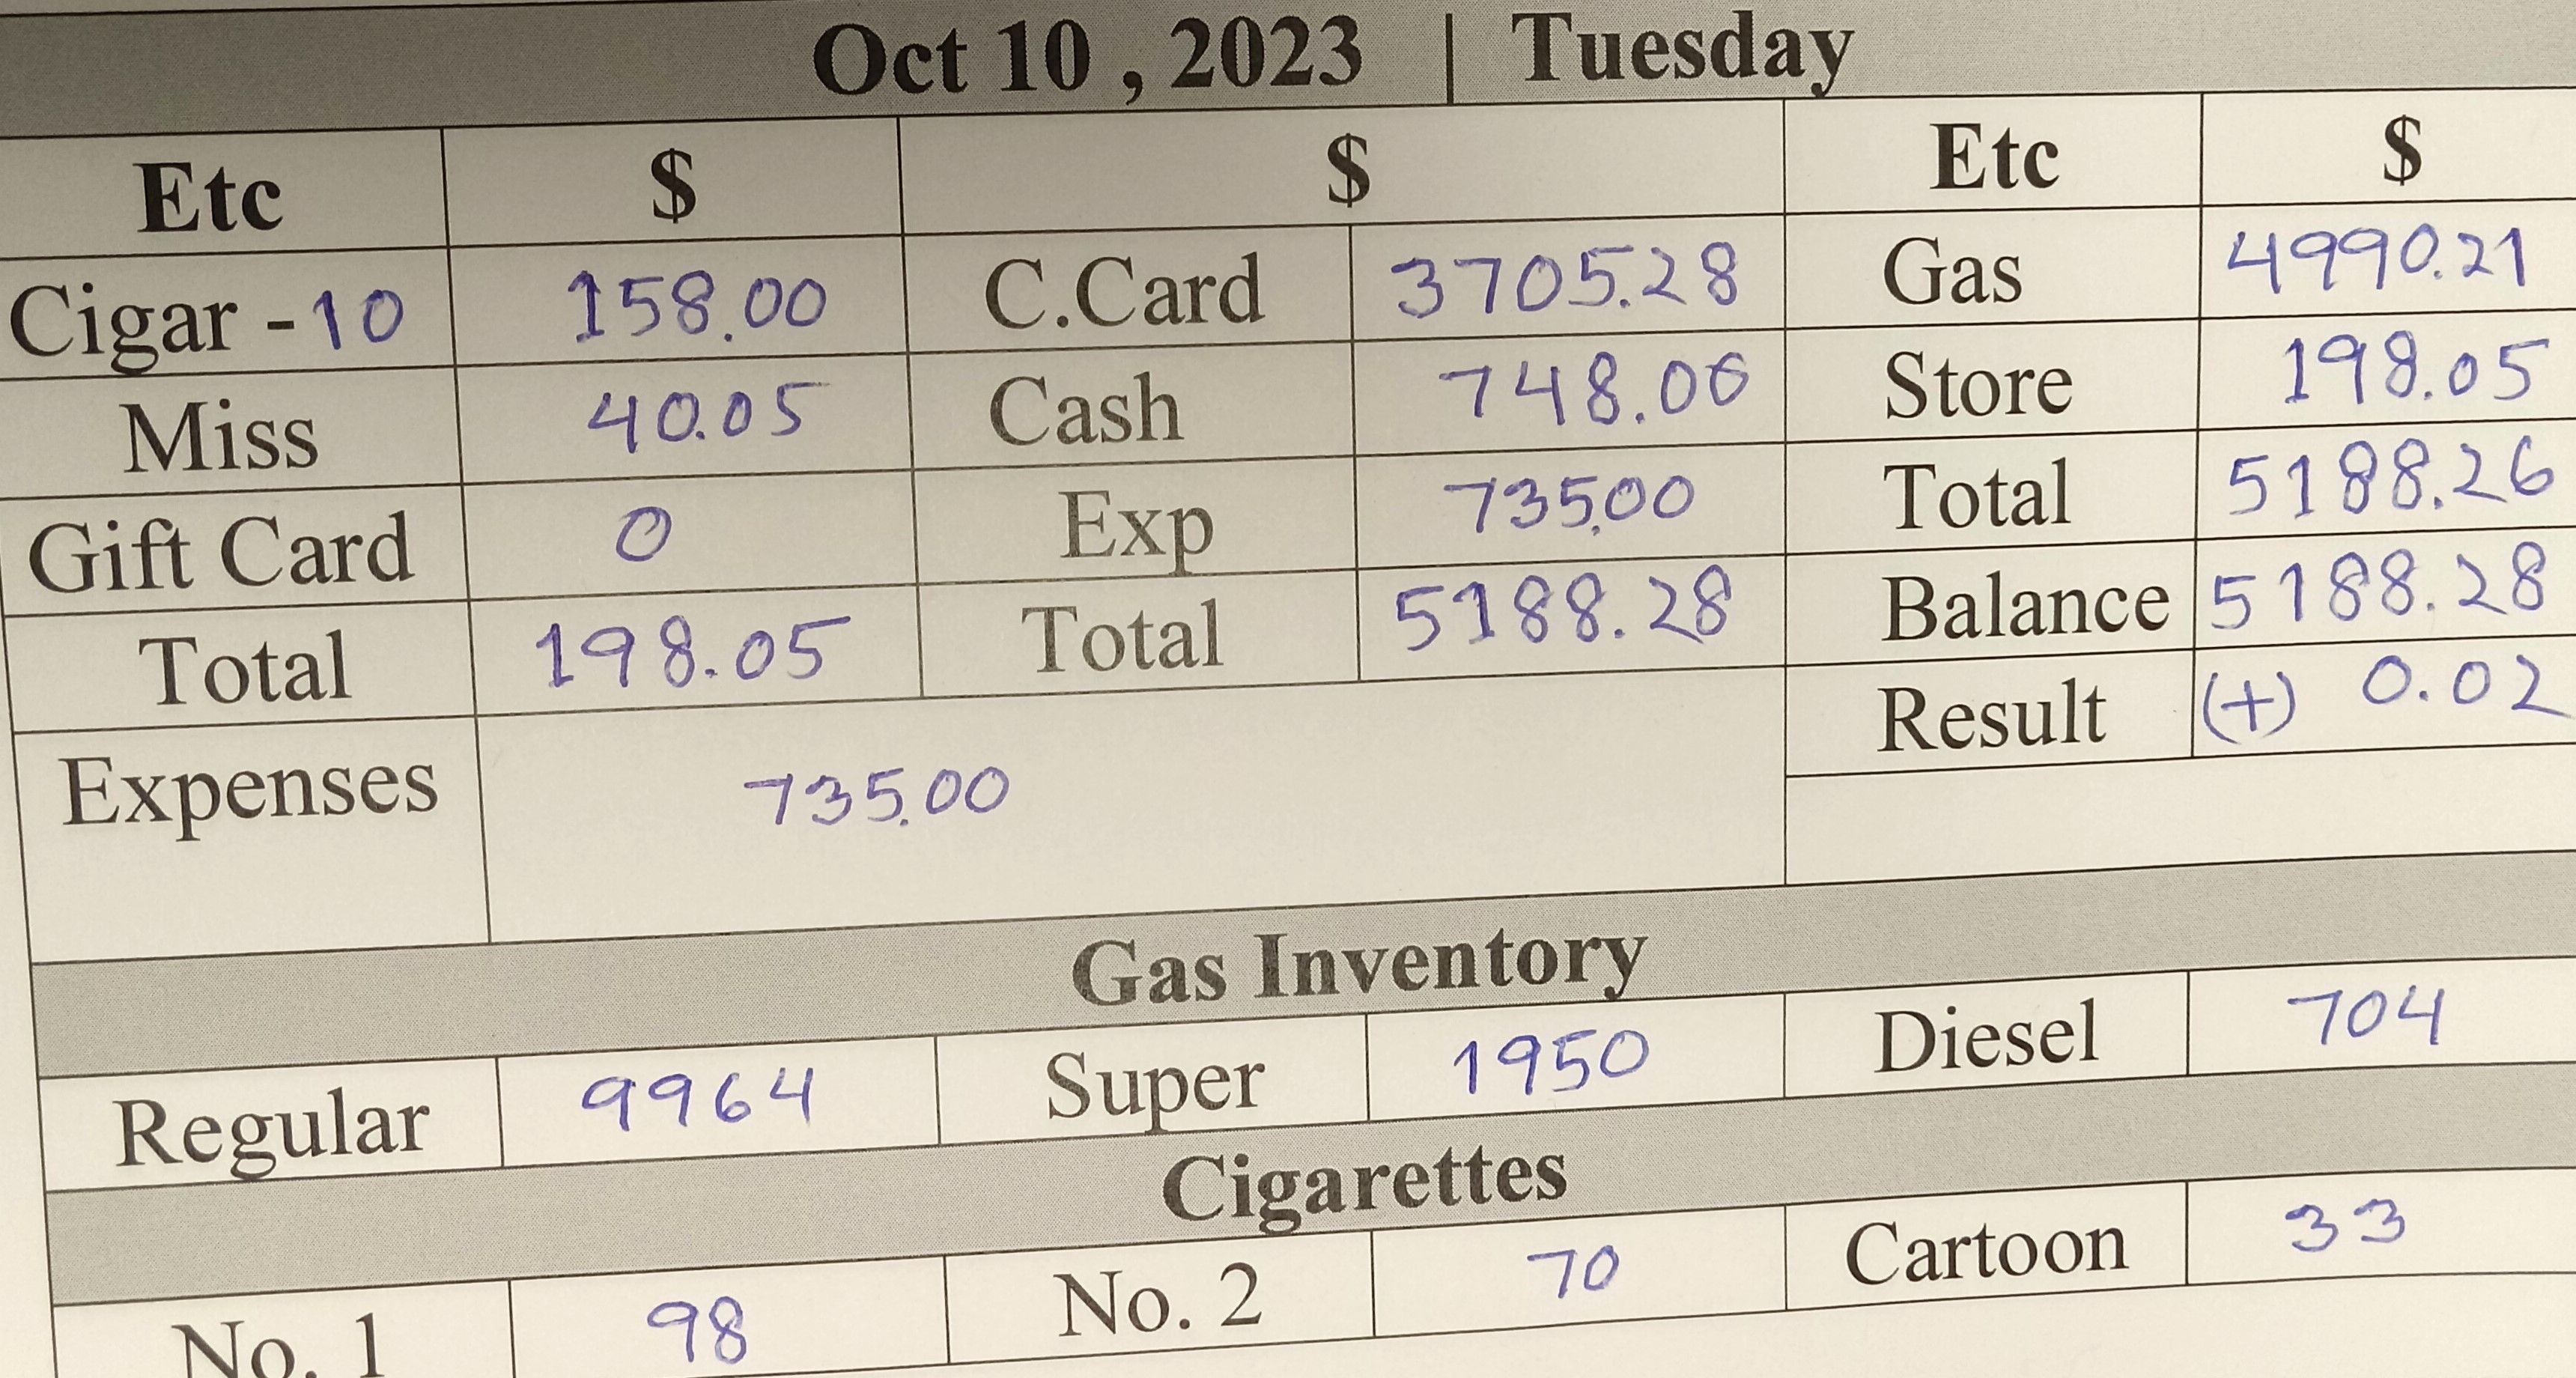 Oct 10 , 2023 | Tuesday
Etc $ $ Etc $
Cigar - 10 158.00 C.Card 3705.28 Gas 4990.21
Miss 40.05 Cash 748.00 Store 198.05
Gift Card 0 Exp 735.00 Total 5188.26
Total 198.05 Total 5188.28 Balance 5188.28
Expenses 735.00 Result (+) 0.02
Gas Inventory
Regular 9964 Super 1950 Diesel 704
Cigarettes
No. 1 98 No. 2 70 Cartoon 33